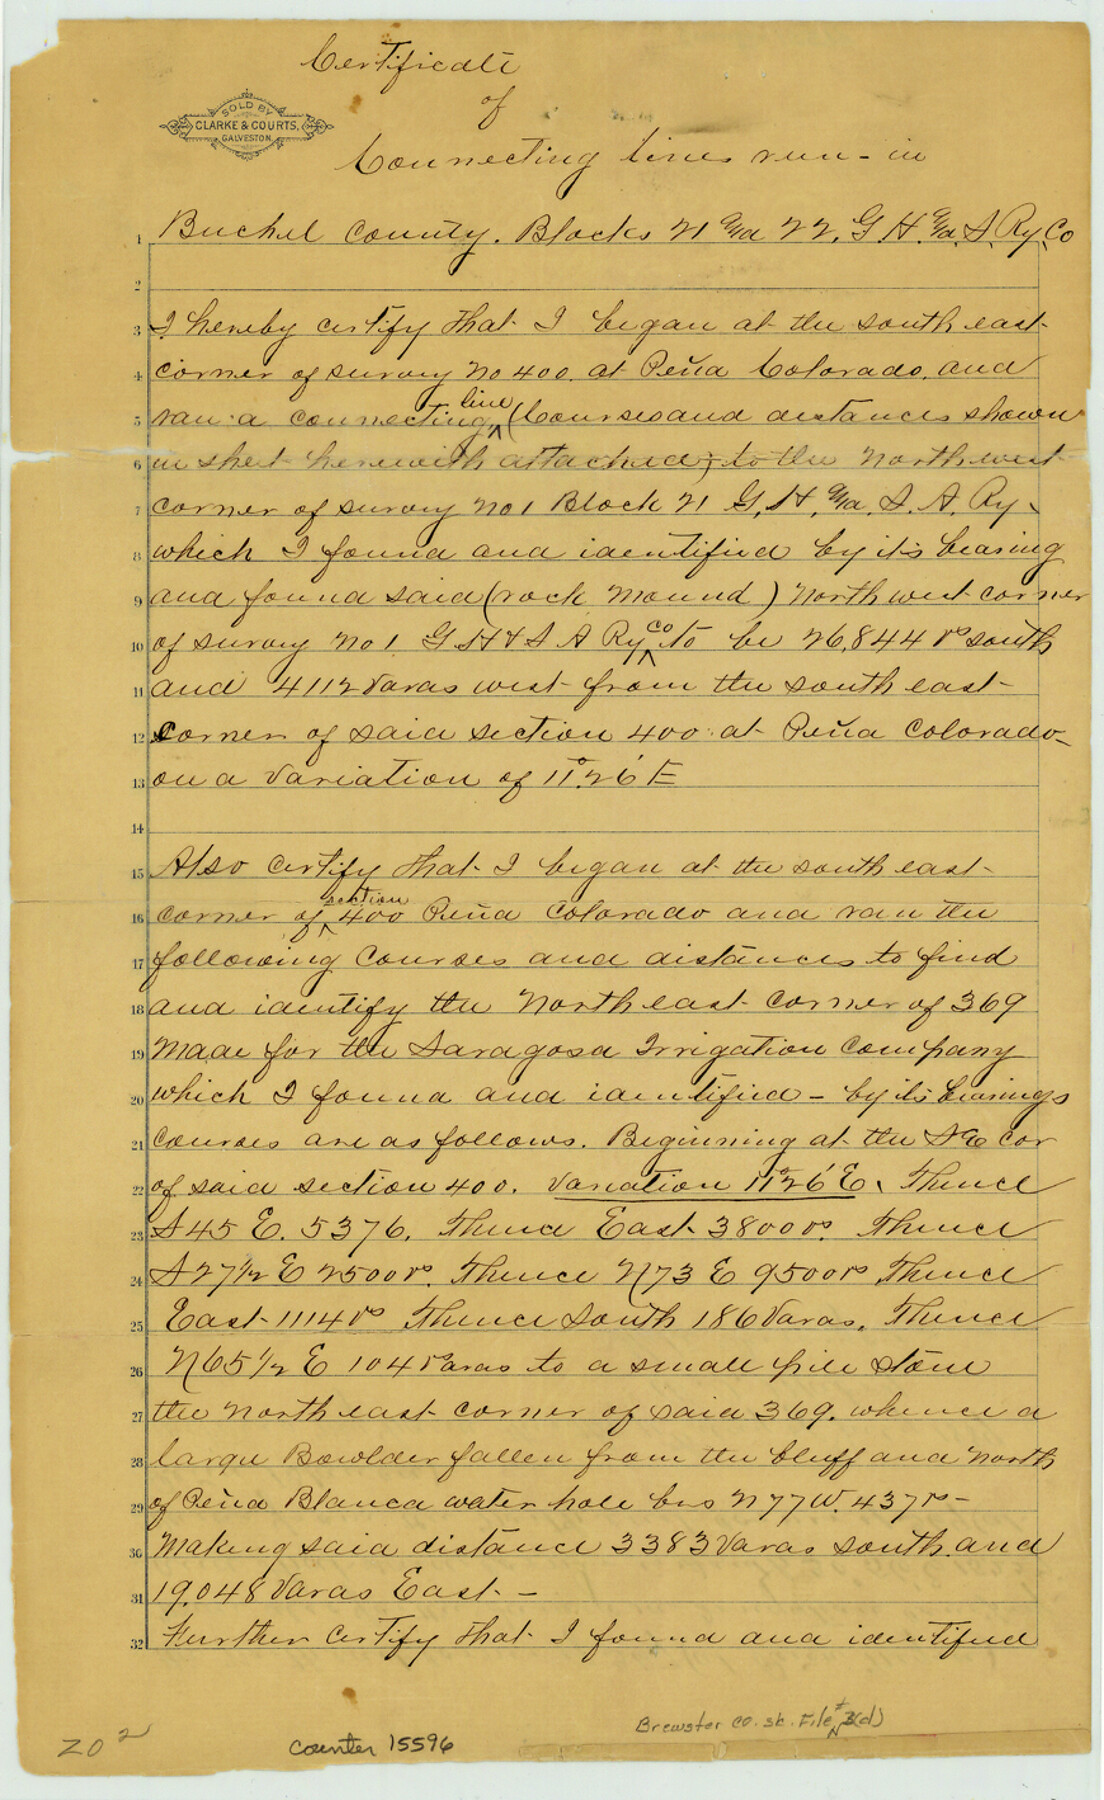 Certificate
of
SOLD BY
CLARKE & COURTS,
GALVESTON.
Connecting lines run in
1 Buchel County. Blocks 21 & 22, G. H. & S. Ry. Co
2
3 I hereby certify that I began at the south east
4 corner of survey No 400. at Peña Colorado. and
5 ran a connecting line (Courses and distances shown
6 in sheet herewith attached) to the North west
7 corner of survey No 1 Block 21 G. H. & S. A. Ry.
8 which I found and identified by it's bearing
9 and found said (rock mound) North west corner
10 of survey No 1 G H & S A Ry Co to be 26,844 vrs south
11 and 4112 varas west from the south east
12 corner of said section 400 at Peña Colorado
13 on a variation of 11°.26' E
14
15 Also certify that I began at the south east
16 corner of section 400 Peña Colorado and ran the
17 following Courses and distances to find
18 and identify the North east corner of 369
19 Made for the Saragosa Irrigation Company
20 which I found and identified - by it's bearings
21 courses are as follows. Beginning at the SE cor
22 of said section 400. Variation 11°26' E. Thence
23 S 45 E. 5376. Thence East 3800 vrs. Thence
24 S 27½ E 2500 vrs. Thence N 73 E 9500 vrs Thence
25 East 1114 vrs Thence South 186 Varas. Thence
26 N 65½ E 104 varas to a small pile stone
27 the North east corner of said 369. whence a
28 large Bowlder fallen from the bluff and North
29 of Peña Blanca water hole brs N 77 W. 437 vrs -
30 Making said distance 3383 Varas south and
31 19.048 Varas East -
32 Further Certify that I found and identified
Brewster Co. Sk. File # N-3(d)
Z0 2
counter 15596